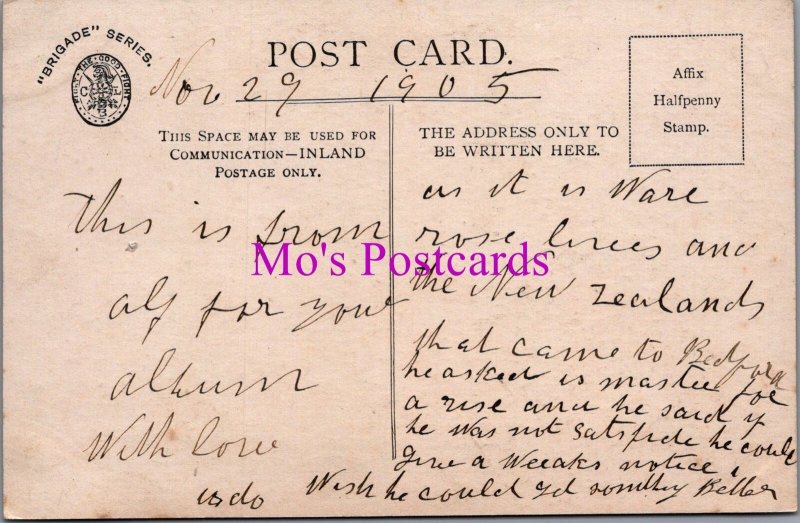 "BRIGADE" SERIES.
FIGHT · THE · GOOD · FIGHT
C L B
POST CARD.
Nov 29 1905
Affix
Halfpenny
Stamp.
THIS SPACE MAY BE USED FOR
COMMUNICATION—INLAND
POSTAGE ONLY.
THE ADDRESS ONLY TO
BE WRITTEN HERE.
this is from
alf for your
album
With love
as it is Ware
rose lives and
the New Zealands
that came to Bedford
he asked is master for
a rise and he said if
he was not satsfide he could
give a Weeaks notice,
Wish he could get Better
Mo's Postcards